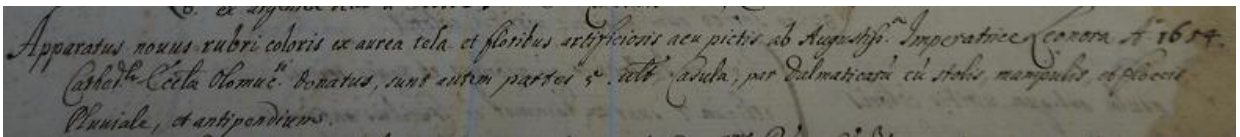 Apparatus nouus rubri coloris ex aurea tela et floribus artificiosis acu pictis ab Augustiss̃. Imperatrice Leonora Aº 1654.
Cathed^li Eccl̃æ Olomuc^si donatus, sunt autem partes 5. ut Casula, par Dalmaticarũ cũ stolis, manipulis, et
Pluuiale, et antipendium.